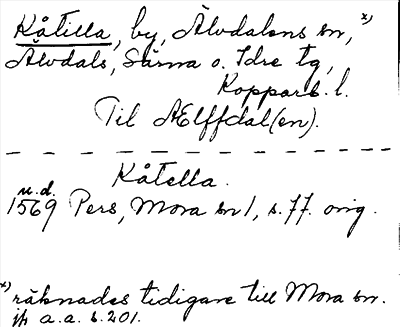 Kåtilla, by, Älvdalens sn, x)
Älvdals, Särna o. Idre tg,
Kopparb. l.
Til Ælffdal(en).
Kåtella.
u.d.
1569 Pers, Mora sn 1, s. 77. orig.
x) räknades tidigare till Mora sn.
jfr a.a. s. 201.